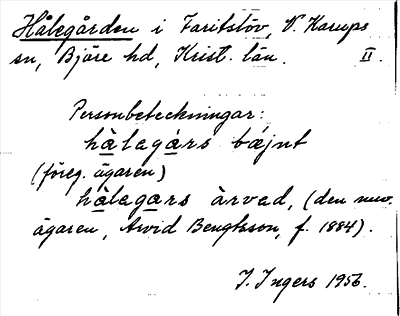 Hålegården i Faritslöv, V. Karups
sn, Bjäre hd, Krist. län. II.
Personbeteckningar:
hålagårs bæjnt
(föreg. ägaren)
hålagårs àrvad, (den nuv.
ägaren, Arvid Bengtsson, f. 1884).
I. Ingers 1956.